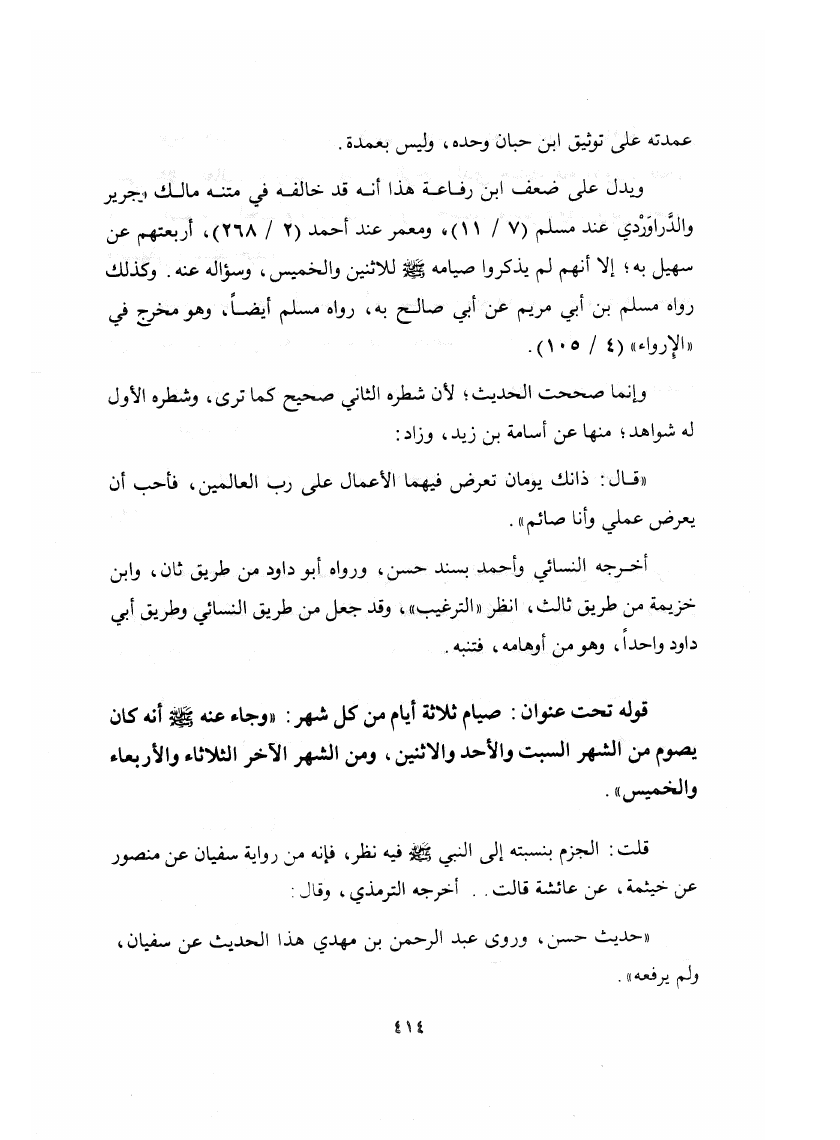 عمدته على توثيق ابن حبان وحده، وليس بعمدة.
ويدل على ضعف ابن رفاعة هذا أنه قد خالفه في متنه مالك وجرير
والدَّراوَرْدي عند مسلم (٧ / ١١)، ومعمر عند أحمد (٢ / ٢٦٨)، أربعتهم عن
سهيل به؛ إلا أنهم لم يذكروا صيامه ﷺ للاثنين والخميس، وسؤاله عنه. وكذلك
رواه مسلم بن أبي مريم عن أبي صالح به، رواه مسلم أيضاً، وهو مخرج في
«الإرواء» (٤ / ١٠٥).
وإنما صححت الحديث؛ لأن شطره الثاني صحيح كما ترى، وشطره الأول
له شواهد؛ منها عن أسامة بن زيد، وزاد:
«قال: ذانك يومان تعرض فيهما الأعمال على رب العالمين، فأحب أن
يعرض عملي وأنا صائم».
أخرجه النسائي وأحمد بسند حسن، ورواه أبو داود من طريق ثان، وابن
خزيمة من طريق ثالث، انظر «الترغيب»، وقد جعل من طريق النسائي وطريق أبي
داود واحداً، وهو من أوهامه، فتنبه.
قوله تحت عنوان: صيام ثلاثة أيام من كل شهر: «وجاء عنه ﷺ أنه كان
يصوم من الشهر السبت والأحد والاثنين، ومن الشهر الآخر الثلاثاء والأربعاء
والخميس».
قلت: الجزم بنسبته إلى النبي ﷺ فيه نظر، فإنه من رواية سفيان عن منصور
عن خيثمة، عن عائشة قالت. . أخرجه الترمذي، وقال:
«حديث حسن، وروى عبد الرحمن بن مهدي هذا الحديث عن سفيان،
ولم يرفعه».
٤١٤